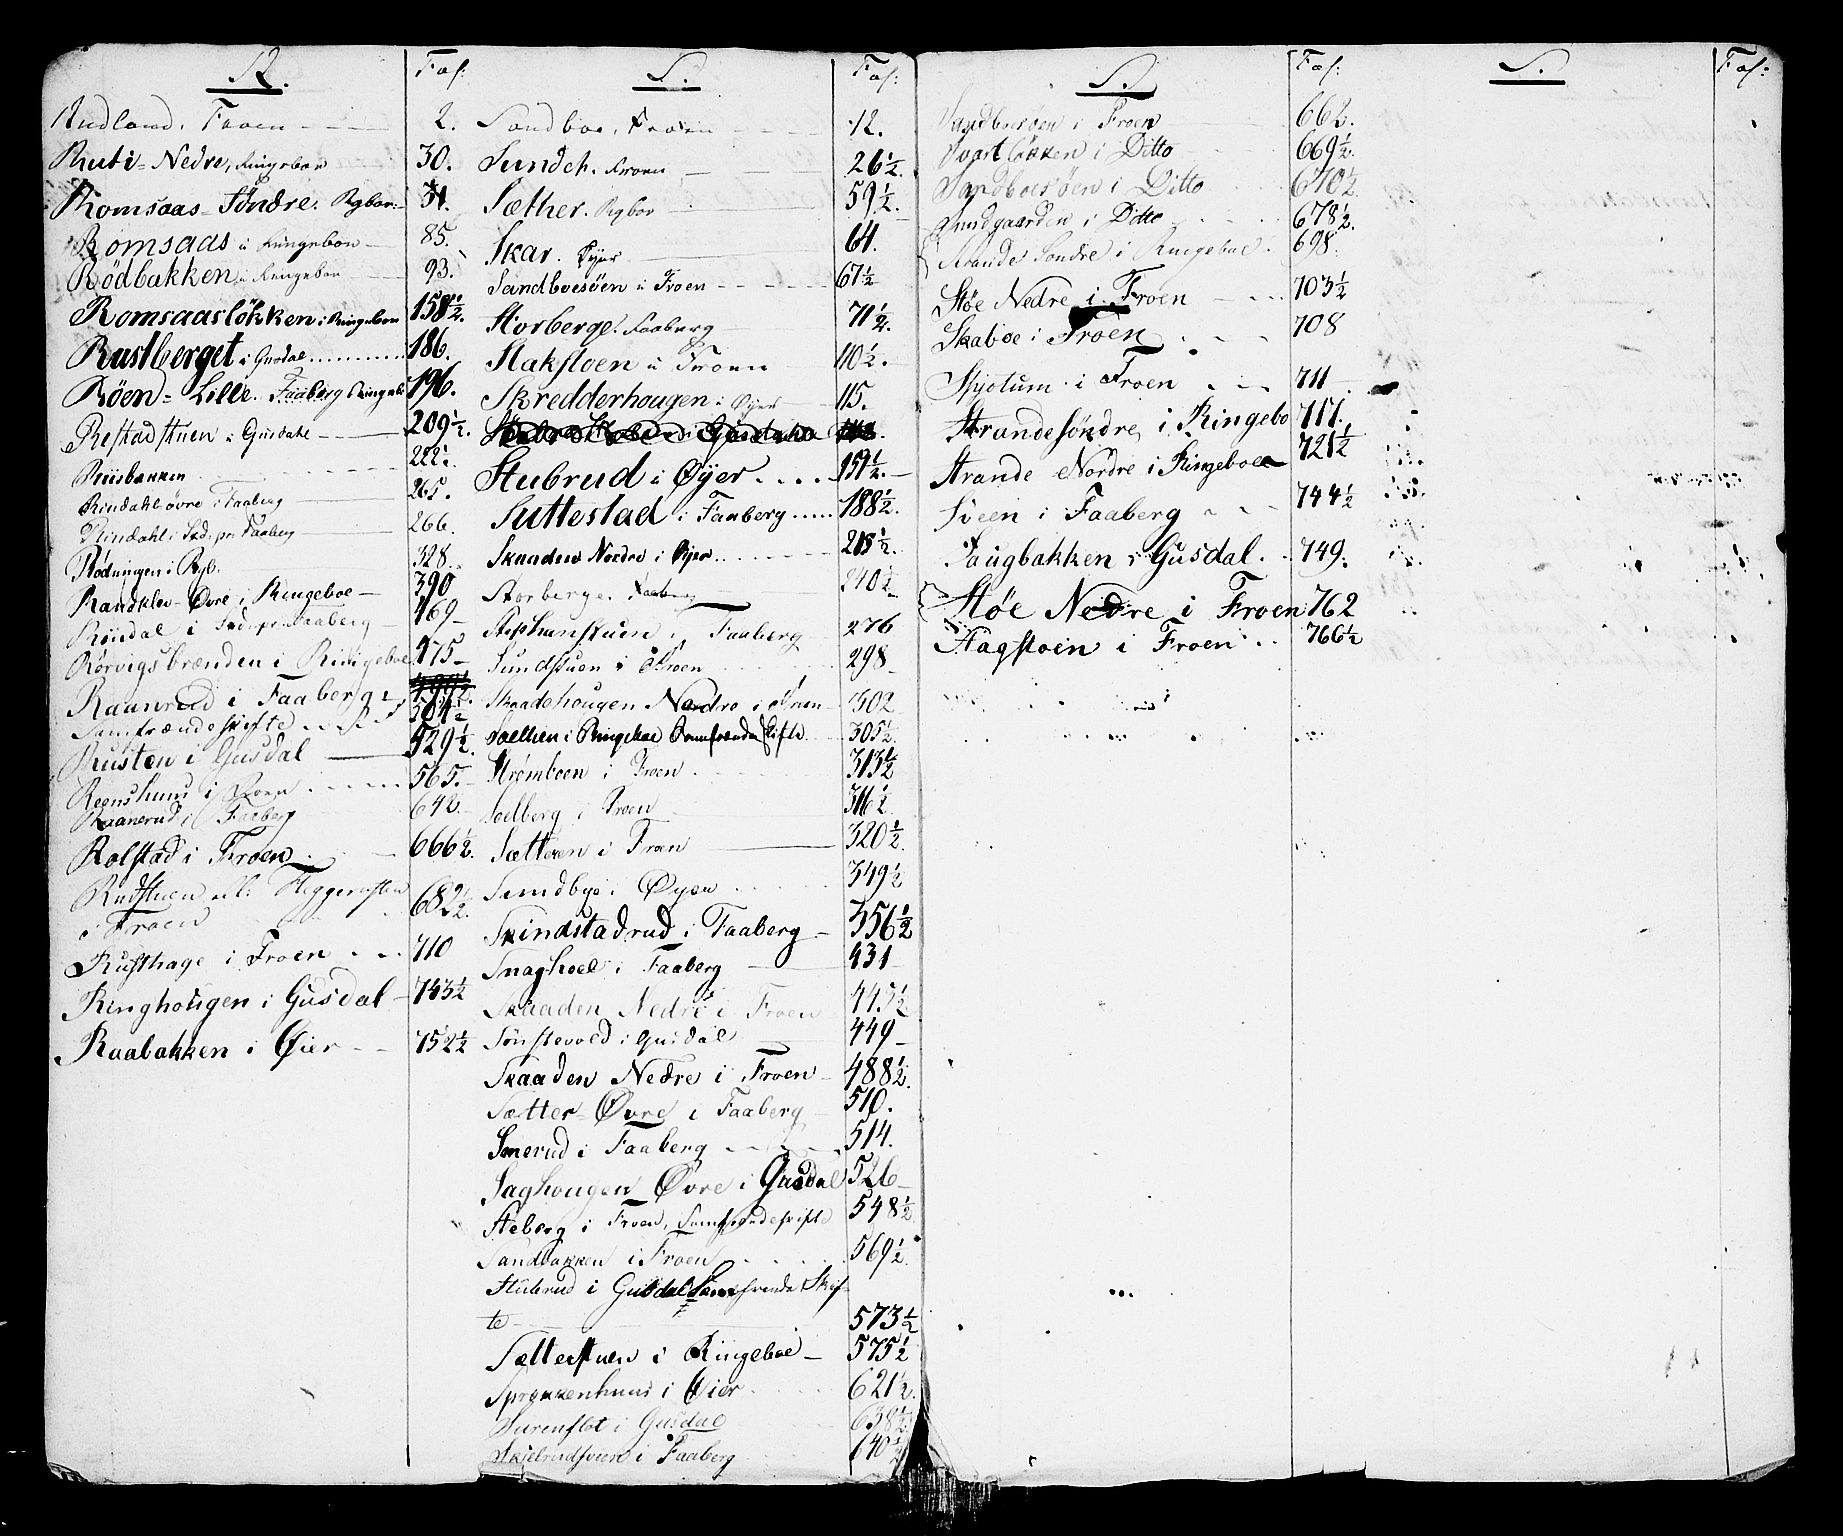 R.
Fol:
Rudland, Froen 2.
Ruti-Nedre, Ringeboe 30.
Romsaas-Søndre. Rgboe: 31.
Romsaas i Ringeboe 85.
Rödbakken i Ringeboe 93.
Romsaaslökken i Ringeboe 158½.
Rustberget i Gusdal 186.
Röen-Lille. Faaberg 196.
Restadstuen i Gusdahl 209½.
Riisbakken 222½.
Rindahl øvre i Faaberg 265.
Rindahl i Faaberg 266.
Rödningen i Rgb. 328.
Randklev-Øvre i Ringeboe 390
Rindal i Faaberg 469
Rörvigsbrænden i Ringeboe 475
499½.
Raanrud i Faaberg
Samfrændeskifte 504½
Rusten i Gusdal 529½.
Reenshuus i Froen 565.
Raanerud i Faaberg 642
Rolstad i Froen 666½.
Rudstuen ell: Heggerusten
i Froen 682½.
Rusthage i Froen 710
Ringhougen i Gusdal 743½
Raabakken i Øier 752½
S.
Fol:
Sandboe, Froen 12.
Sundet. Froen 26½.
Sæther. Rgboe 59½.
Skar. Øyer 64.
Sandboesöen i Froen 67½
Storberge. Faaberg 71½.
Stakstoen i Froen 110½.
Skredderhougen i Øyer 115.
Stubrud i Øyer 151½.
Suttestad i Faaberg 188½.
Skaaden Nordre i Øyer 215½.
Storberge. Faaberg 240½
Faaberg 276
Sundstuen i Froen 298
Skaadehougen Nordre i Froen 302
Soelhien i Ringeboe Samfrænde Skifte 305½
Strømboen i Froen 313½
Soelberg i Froen 316½
Sætteren i Froen 320½.
Sundbye i Øyen 349½
Skindstadrud i Faaberg 356½
Snaghoel i Faaberg 431
Skaaden Nedre i Froen 443½
Sønstevold i Gusdal 449
Skaaden Nedre i Froen 488½.
Sætter-Øvre i Faaberg 510.
Smerud i Faaberg 514.
Saghougen Øvre i Gusdal 526
Steberg i Froen, Samfrændeskifte 548½
Sandbakken i Froen 569½
Stubrud i Gusdal Samfrænde Skif-
te 573½
Sætterstuen i Ringeboe 575½
Sprækkenhuus i Øier 621½.
Surenflot i Gusdal 638½
Skjelrudsveen i Faaberg 640½
S.
Fol:
Sandboesöen i Froen 662.
Svartløkken i Ditto 669½.
Sandboesøen i Ditto 670½
Sundgaarden i Ditto 678½.
Strande Søndre i Ringeboe. 698.
Støe Nedre i Froen 703½
Skaboe i Froen 708
Skjotum i Froen 711
Strandesøndre i Ringebo 717.
Strande Nordre i Ringeboe 721½
Sveen i Faaberg 744½
Haugbakken i Gusdal. 749.
Støe Nedre i Froen 762
Flagstoen i Froen 766½
S.
Fol: